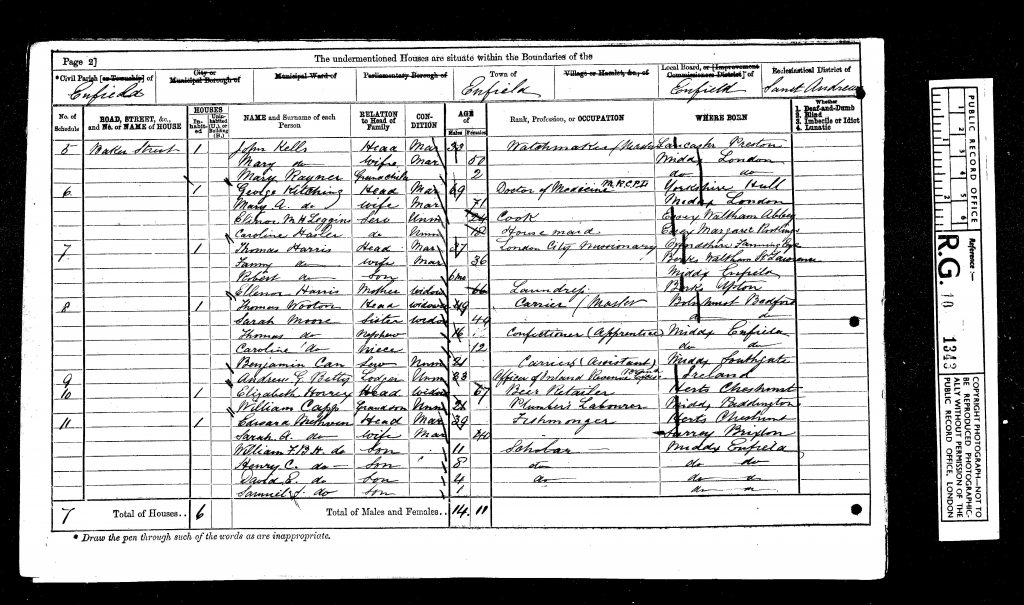 Page 2]
The undermentioned Houses are situate within the Boundaries of the
*Civil Parish [or Township] of
City or Municipal Borough of
Municipal Ward of
Parliamentary Borough of
Town of
Village or Hamlet, &c., of
Local Board, or [Improvement Commissioners District] of
Ecclesiastical District of
Enfield Enfield Enfield Saint Andrew
No. of Schedule
ROAD, STREET, &c., and No. or NAME of HOUSE
HOUSES
Inhabited
Uninhabited (U.), or Building (B.)
NAME and Surname of each Person
RELATION to Head of Family
CONDITION
AGE of
Males Females
Rank, Profession, or OCCUPATION
WHERE BORN
Whether
1. Deaf-and-Dumb
2. Blind
3. Imbecile or Idiot
4. Lunatic
5 Baker Street 1 John Kells Head Mar 53 Watchmaker (Master Lancash Preston
Mary do Wife Mar 50 Middx London
Mary Rayner Grandchild 2 do do
6 1 George Kitching Head Mar 69 Doctor of Medicine Yorkshire Hull
Mary A. do Wife Mar 71 Middx London
Elenor M H Loggins Serv Unm 24 Cook Essex Waltham Abbey
Caroline Hasler do Unm 18 House maid Essex Margaret
7 1 Thomas Harris Head Mar 37 London City Missionary Oxfordshire
Fanny do Wife Mar 36 Berks Waltham St Lawrence
Robert do Son 6mo Middx Enfield
Ellenor Harris Mother Widow 66 Laundress Berks
8 1 Thomas Wooton Head Widower 49 Carrier (Master Bedford
Sarah Moore Sister Widow 49 do do
Thomas do Nephew 16 Confectioner (Apprentice) Middx Enfield
Caroline do Niece 12 do do
Benjamin Can Serv Unm 21 Carriers (Assistant) Middx Southgate
9 Andrew G. Betty Lodger Unm 23 Officer of Inland Revenue Ireland
10 1 Elizabeth Horrex Head Widow 67 Beer Retailer Herts Cheshunt
William Capp Grandson Unm 26 Plumber's Labourer Middx
11 1 Edward Methven Head Mar 39 Fishmonger Herts Cheshunt
Sarah A. do Wife Mar 40 Surrey Brixton
William F. B. H. do Son 11 Scholar Middx Enfield
Henry C. do Son 8 do do do
David E. do Son 4 do do do
Samuel J. do Son 1 do do
7 Total of Houses.. 6 Total of Males and Females.. 14 11
* Draw the pen through such of the words as are inappropriate.
PUBLIC RECORD OFFICE
1 2 3 4 5 6
Reference :—
R.G. 10 1343
COPYRIGHT PHOTOGRAPH—NOT TO BE REPRODUCED PHOTOGRAPHICALLY WITHOUT PERMISSION OF THE PUBLIC RECORD OFFICE, LONDON